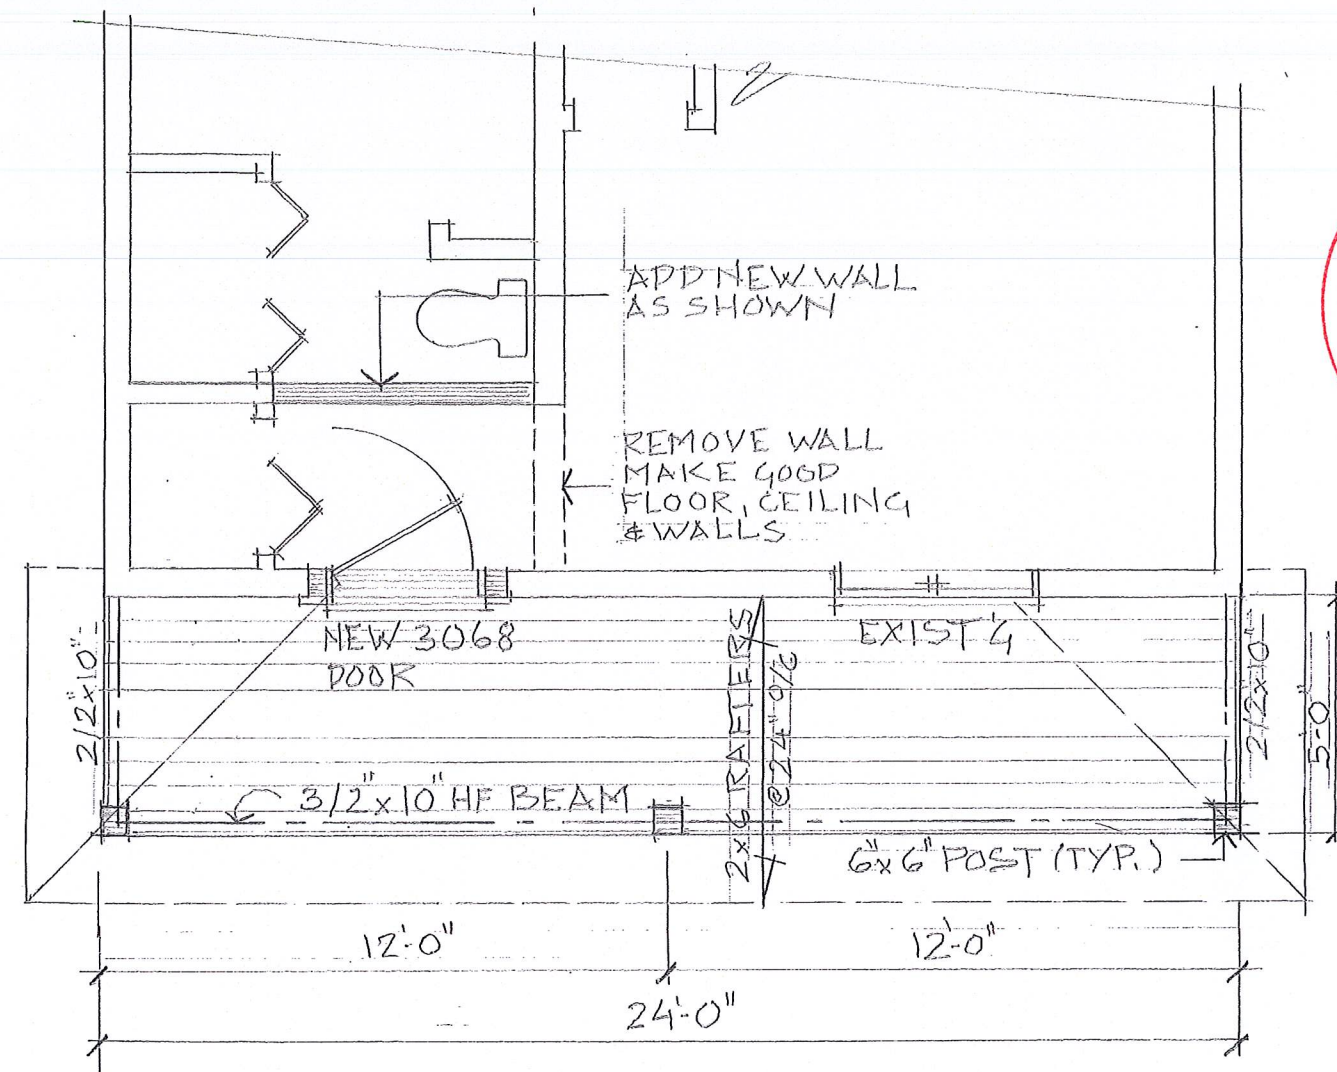 ADD NEW WALL
AS SHOWN
REMOVE WALL
MAKE GOOD
FLOOR, CEILING
& WALLS
NEW 3068
DOOR
EXIST'G
2/2"x10"
2x6 RAFTERS
@ 24" O/C
2/2x10"
5'-0"
3/2"x10" HF BEAM
6"x6" POST (TYP.)
12'-0"
12'-0"
24'-0"